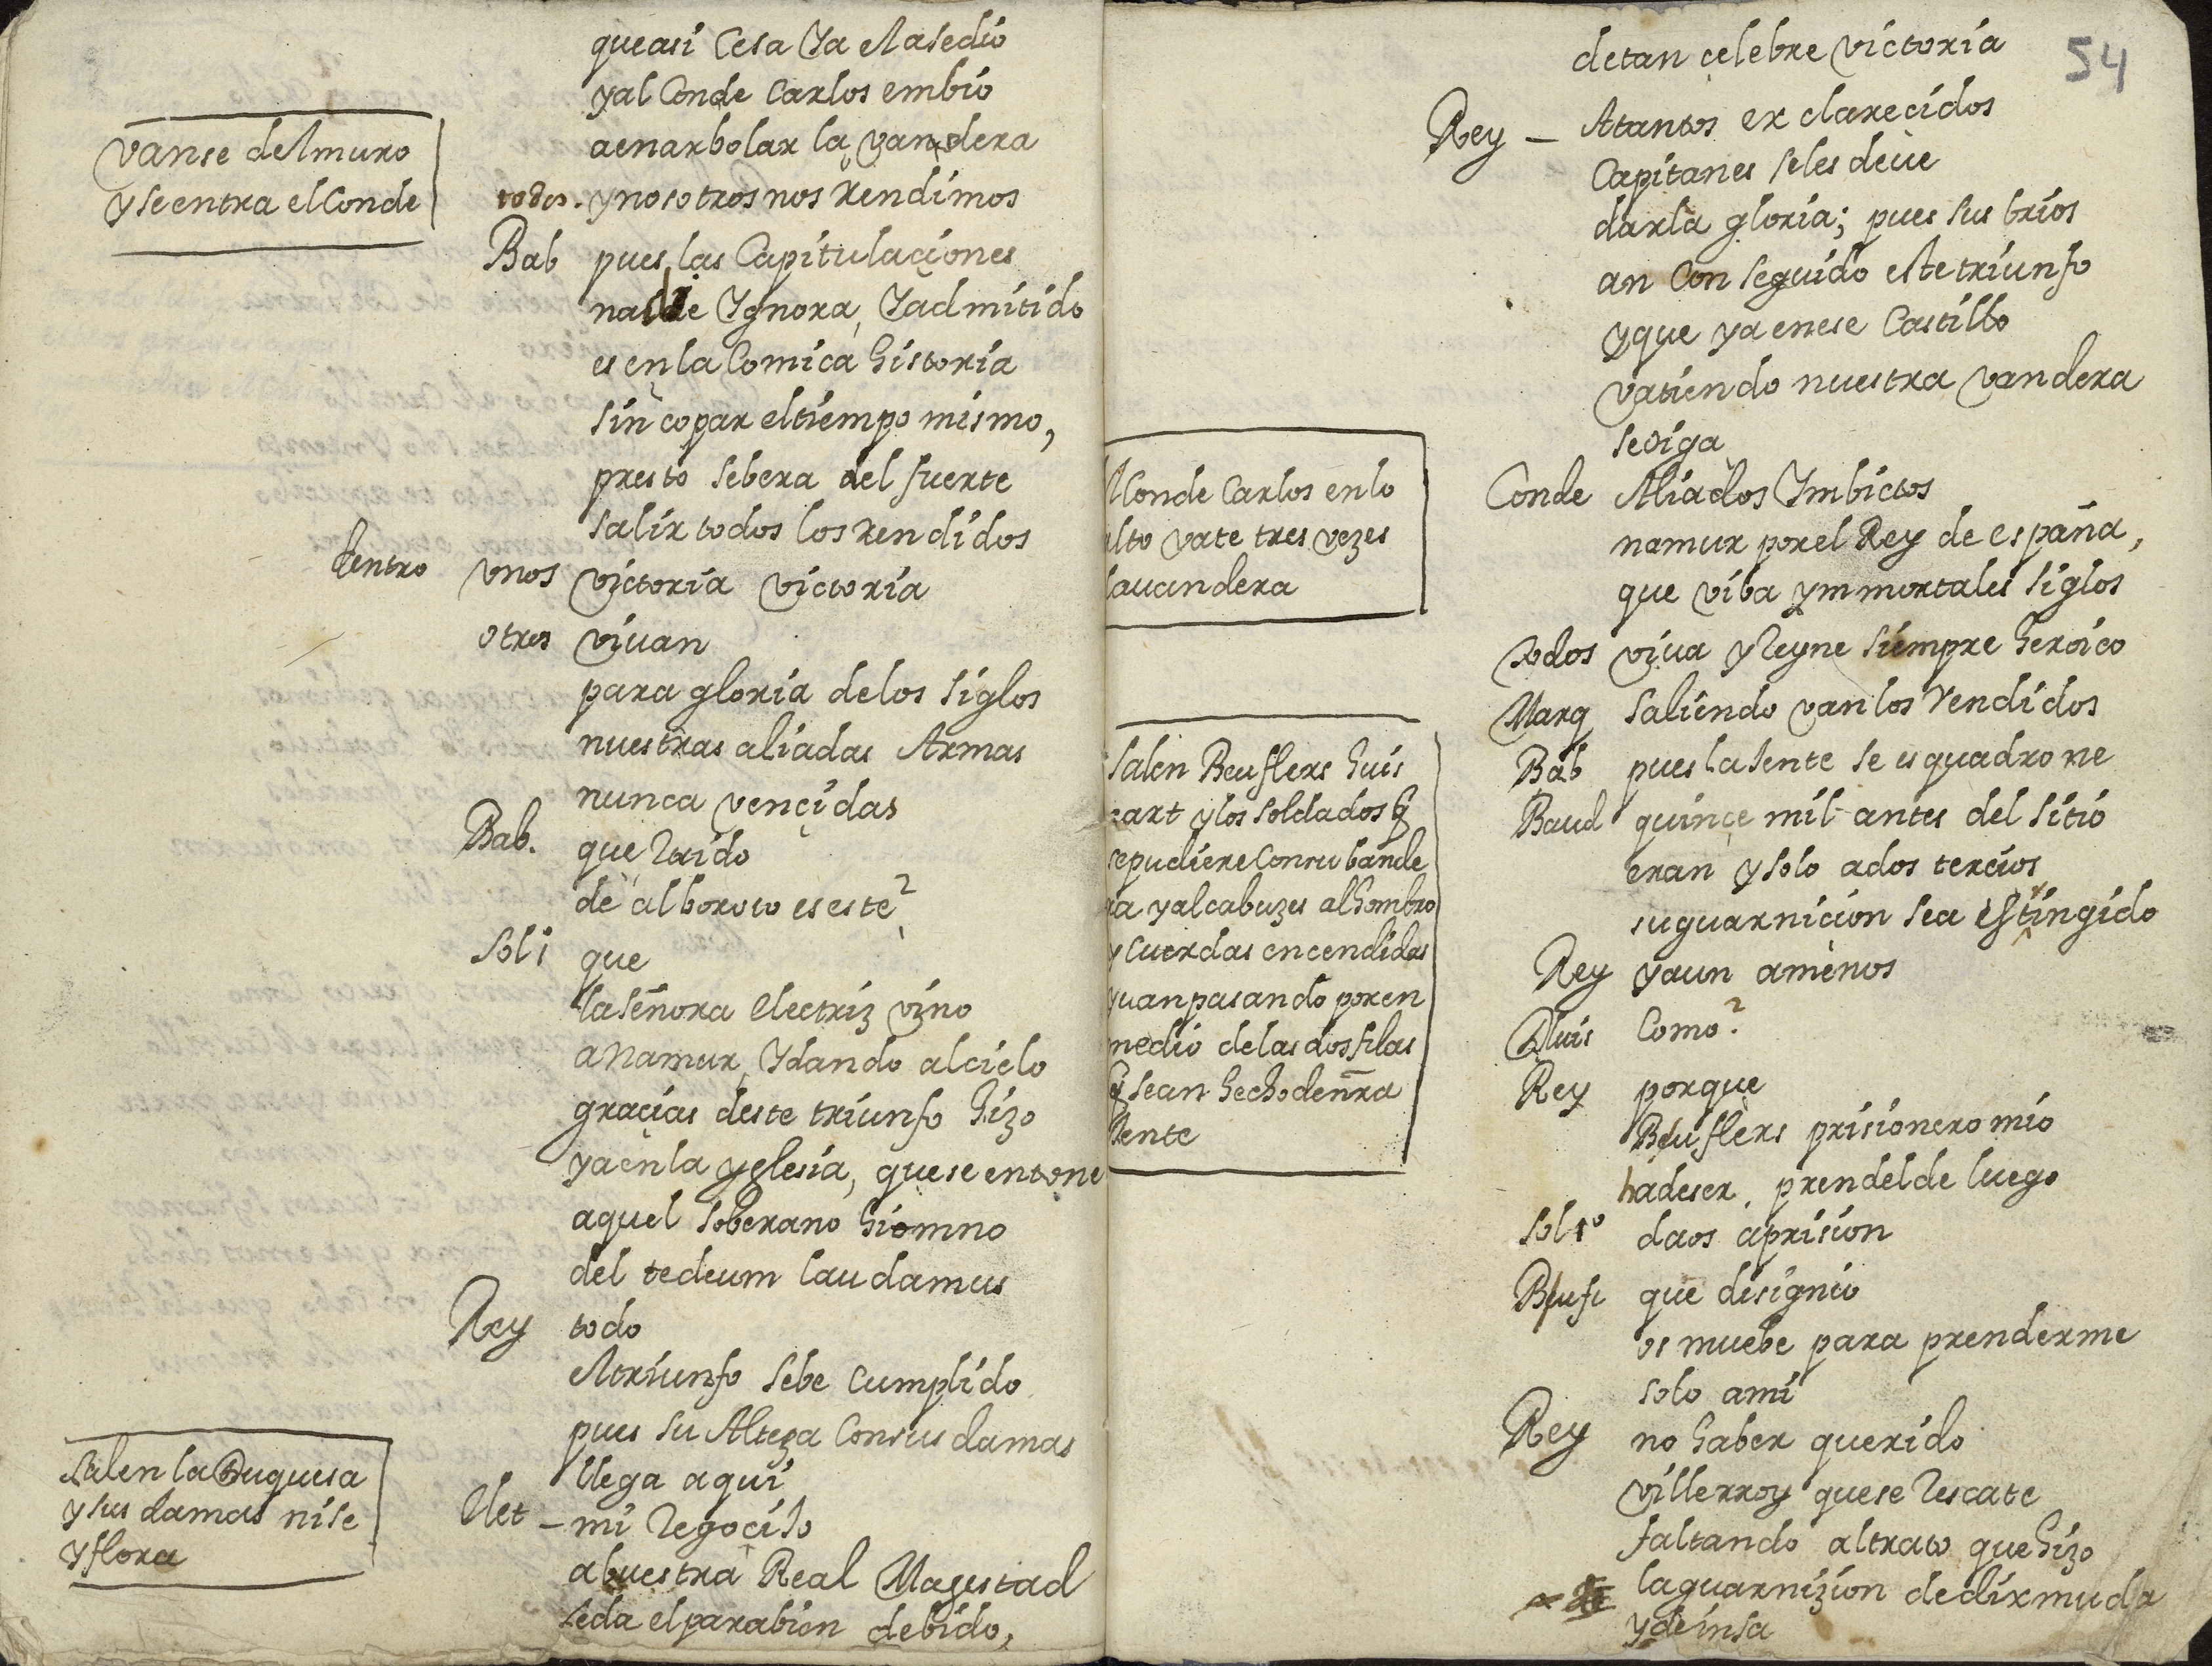 queasi Cesa Ya elasedio
yal Conde Carlos embio
aenarbolar la vandera
Vanse delmuro
y se entra el Conde
todos. ynosotros nos Rendimos
Bab pues las Capitulaciones
nadie Ygnora, Yadmitido
es enla Comica historia
sincopar eltiempo mismo,
presto sebera del fuerte
salir todos los Rendidos
dentro vnos victoria victoria
otros vivan
para gloria delos siglos
nuestras aliadas Armas
nunca vencidas
Bab. que Ruido
de alboroto es este?
Sol 1 que
la señora electriz vino
a Namur, Ydando alcielo
gracias deste triunfo hizo
ya enla yglesia, que se entone
aquel soberano hiomno
del tedeum laudamus
Rey todo
eltriunfo sebe cumplido
pues su Alteza Consus damas
llega aqui
Salen la Duquesa
y sus damas nise
y flora
Elet - mi Regocijo
abuestra Real Magestad
leda elparabien debido,
54
detan celebre victoria
Rey - Atantos exclarecidos
Capitanes seles deve
darla gloria; pues sus brios
an Conseguido este triunfo
yque ya enese Castillo
vatiendo nuestra vandera
sediga
el Conde Carlos enlo
alto vate tres vezes
lavandera
Conde Aliados Ymbictos
namur porel Rey de españa,
que viba ymmortales siglos
todos viva yReyne siempre heroico
Marq saliendo van los Rendidos
Bab pues la Jente se esquadrone
Baud quince mil antes del sitio
eran y solo ados tercios
suguarnicion sea estingido
Rey yaun amenos
Salen Beuflers Guis
cart ylos soldados q
sepudiere Consu bande
ra yalcabuzes alhombro
y cuerdas encendidas
yvanpasando poren
medio delas dos filas
q sean hecho denra
Jente
Guis Como?
Rey porque
Beuflers prisionero mio
hadeser, prendelde luego
Sol 1º daos aprision
Beufl que designio
os muebe para prenderme
solo ami
Rey no haber querido
villerroy que se Rescate
faltando altrato que hizo
laguarnizion dedixmuda
ydeinsa